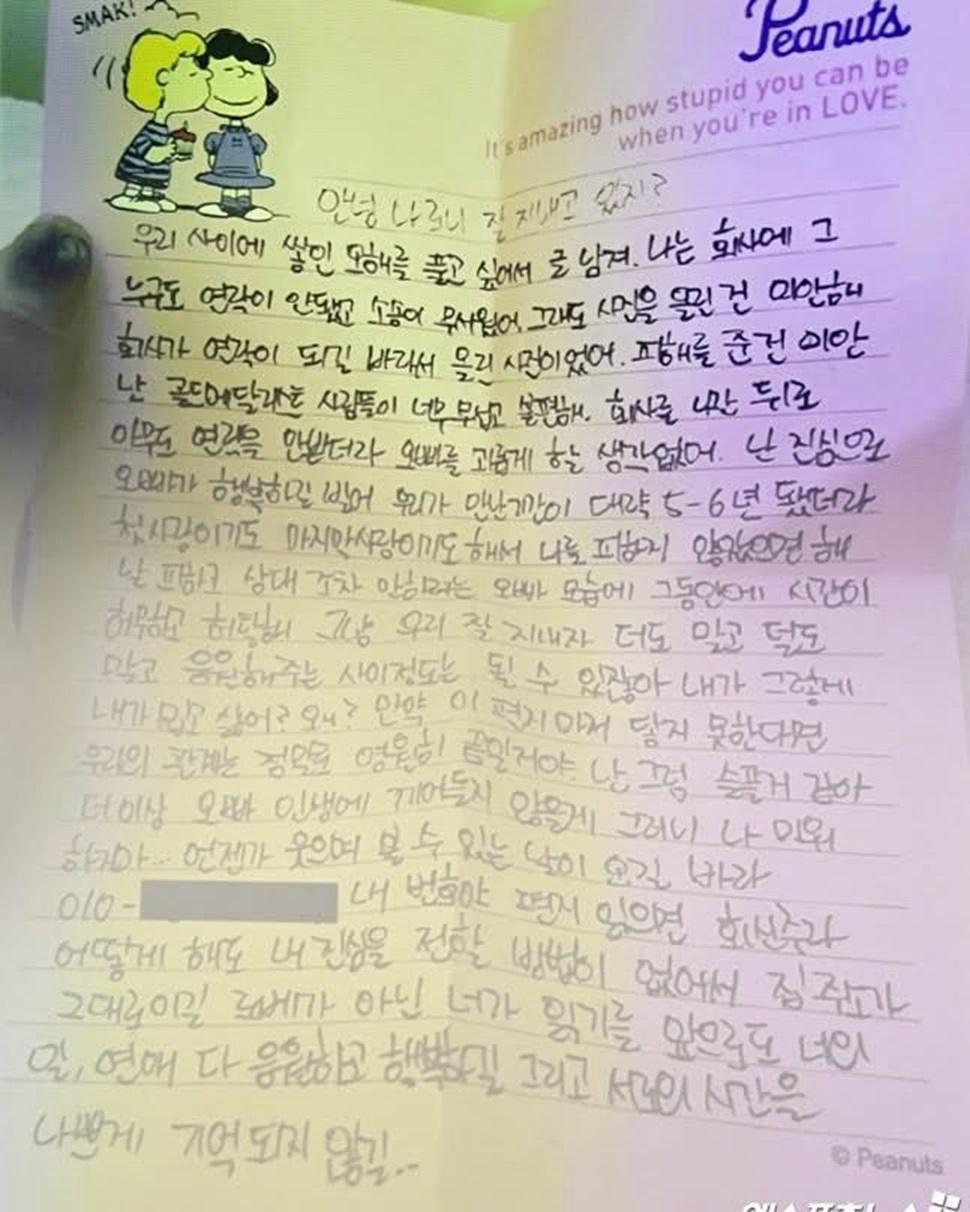 SMAK!
Peanuts
It's amazing how stupid you can be
when you're in LOVE.
안녕 나 잘 지내고 있지?
우리 사이에 쌓인 오해를 풀고 싶어서 글 남겨. 나는 회사에 그
누구도 연락이 안됐고 소송이 무서웠어 그래도 사진을 올린 건 미안해
회사가 연락이 되길 바라서 올린 사진이었어. 피해를 준건 미안
난 골드메달리스트 사람들이 너무 무섭고 불편해. 회사를 나간 뒤로
아무도 연락을 안받더라 오빠를 괴롭게 할 생각없어. 난 진심으로
오빠가 행복하길 빌어 우리가 만난기간이 대략 5-6년 됐더라
첫사랑이기도 마지막사랑이기도해서 나를 피하지 않았으면 해
난 상대 조차 안하려는 오빠 모습에 그동안에 시간이
허무하고 허탈해 그냥 우리 잘 지내자 더도 말고 덜도
말고 응원해주는 사이정도는 될 수 있잖아 내가 그렇게
내가 밉고 싫어? 왜? 만약 이 편지마저 닿지 못한다면
우리의 관계는 정말로 영원히 끝일거야 난 그럼 슬플거 같아
더이상 오빠 인생에 끼어들지 않을게 그러니 나 미워
하지마... 언젠가 웃으며 볼 수 있는 날이 오길 바라
010- 내 번호야 편지 읽으면 회신주라
어떻게 해도 내진심을 전할 방법이 없어서 집주소가
그대로이길 로베가 아닌 너가 읽기를 앞으로도 너의
일, 연애 다 응원하고 행복하길 그리고 서로의 시간을
나쁘게 기억되지 않길...
© Peanuts